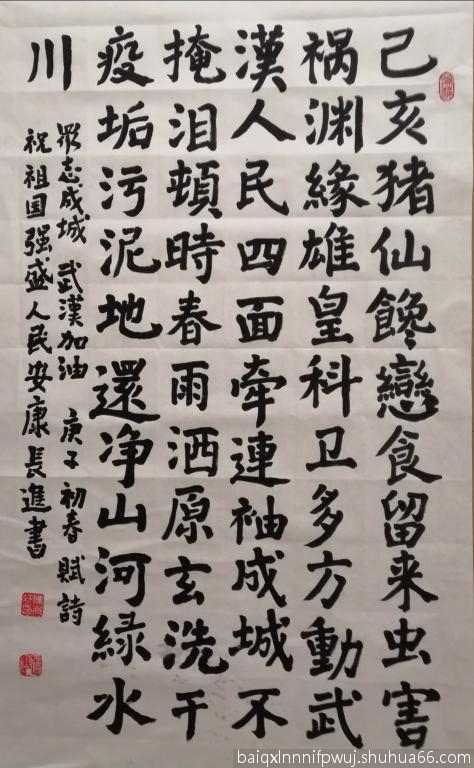 己亥猪仙馋戀食留来虫害
祸渊緣雄皇科卫多方動武
漢人民四面牵連袖成城不
掩泪頓時春雨洒原玄洗干
疫垢污泥地還净山河緑水
川
眾志成城 武漢加油 庚子初春賦詩
祝祖国强盛人民安康長進書
baiqxlnnnifpwuj.shuhua66.com